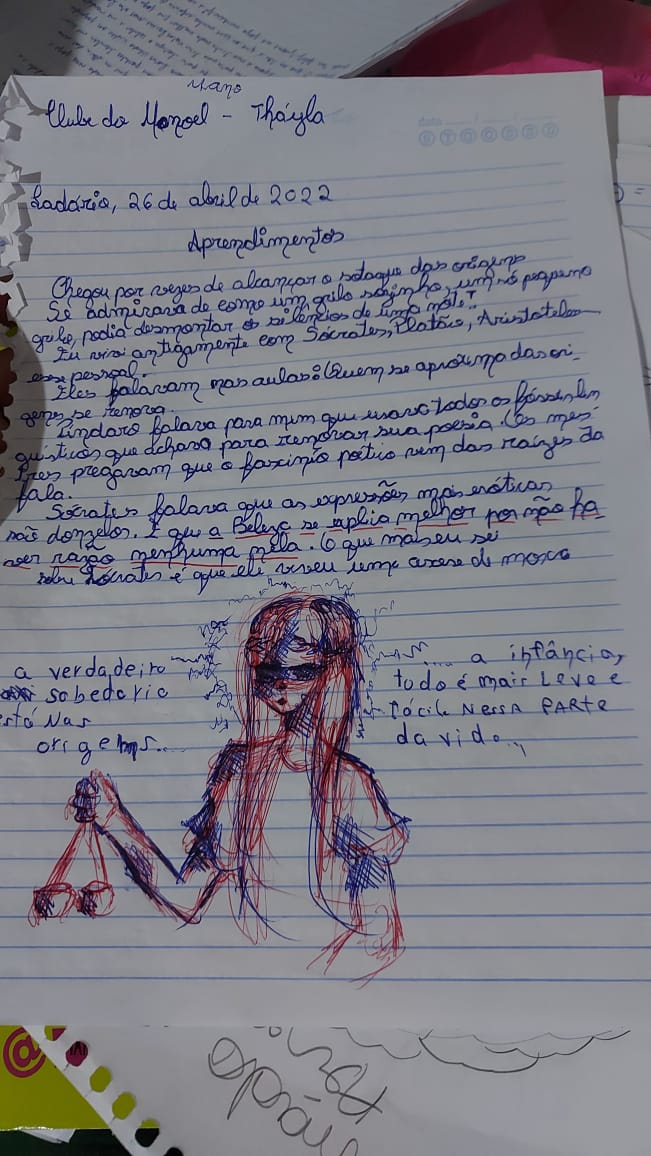 Mano
Clube do Manoel - Tháyla
data / /
S T Q Q S S D
Ladário, 26 de abril de 2022
Aprendimentos
Chegou por vezes de alcançar o sotaque das origens
Se admirava de como um grilo sozinho, um só pequeno
grilo, podia desmontar os silêncios de uma noite!
Eu vivi antigamente com Sócrates, Platão, Aristoteles
esse pessoal.
Eles falavam nas aulas: Quem se aproxima das ori-
gens se renova.
Píndaro falava para mim que usava todos os fósseis lin
guísticos que achava para renovar sua poesia. Os mes-
tres pregavam que o fascínio poético vem das raízes da
fala.
Sócrates falava que as expressões mais eróticas
são donzelas. E que a Beleza se explica melhor por não ha
ver razão nenhuma nela. O que mais eu sei
sobre Sócrates é que ele viveu uma ascese de mosca
a verdadeira
sabedoria
está Nas
origens...
... a infância,
tudo é mais Leve e
fácil Nessa PARte
da vida...
@